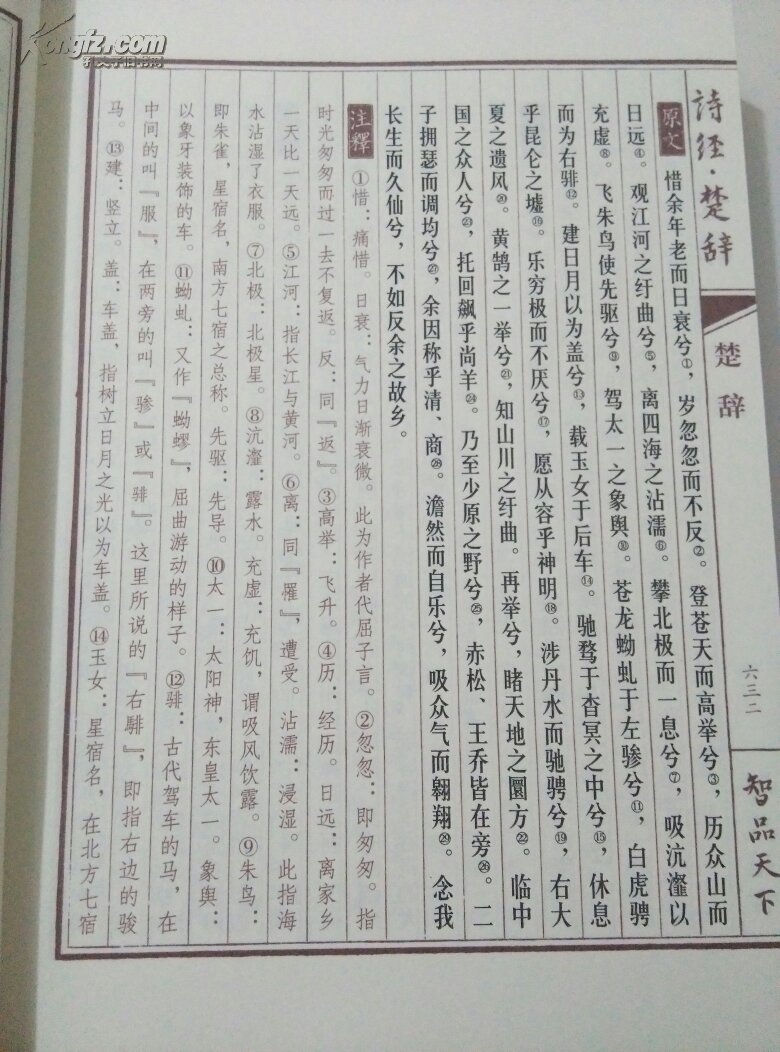 Kongfz.com
孔夫子旧书网
詩经·楚辞
楚辞
六三二
智品天下
原文 惜余年老而日衰兮①，岁忽忽而不反②。登苍天而高举兮③，历众山而
日远④。观江河之纡曲兮⑤，离四海之沾濡⑥。攀北极而一息兮⑦，吸沆瀣以
充虚⑧。飞朱鸟使先驱兮⑨，驾太一之象舆⑩。苍龙蚴虬于左骖兮⑪，白虎骋
而为右騑⑫。建日月以为盖兮⑬，载玉女于后车⑭。驰骛于杳冥之中兮⑮，休息
乎昆仑之墟⑯。乐穷极而不厌兮⑰，愿从容乎神明⑱。涉丹水而驰骋兮⑲，右大
夏之遗风⑳。黄鹄之一举兮㉑，知山川之纡曲。再举兮，睹天地之圜方㉒。临中
国之众人兮㉓，托回飙乎尚羊㉔。乃至少原之野兮㉕，赤松、王乔皆在旁㉖。二
子拥瑟而调均兮㉗，余因称乎清、商㉘。澹然而自乐兮，吸众气而翱翔㉙。念我
长生而久仙兮，不如反余之故乡。
注釋 ①惜：痛惜。日衰：气力日渐衰微。此为作者代屈子言。②忽忽：即匆匆。指
时光匆匆而过一去不复返。反：同『返』。③高举：飞升。④历：经历。日远：离家乡
一天比一天远。⑤江河：指长江与黄河。⑥离：同『罹』，遭受。沾濡：浸湿。此指海
水沾湿了衣服。⑦北极：北极星。⑧沆瀣：露水。充虚：充饥，谓吸风饮露。⑨朱鸟：
即朱雀，星宿名，南方七宿之总称。先驱：先导。⑩太一：太阳神，东皇太一。象舆：
以象牙装饰的车。⑪蚴虬：又作『蚴蟉』，屈曲游动的样子。⑫騑：古代驾车的马，在
中间的叫『服』，在两旁的叫『骖』或『騑』。这里所说的『右騑』，即指右边的骏
马。⑬建：竖立。盖：车盖，指树立日月之光以为车盖。⑭玉女：星宿名，在北方七宿